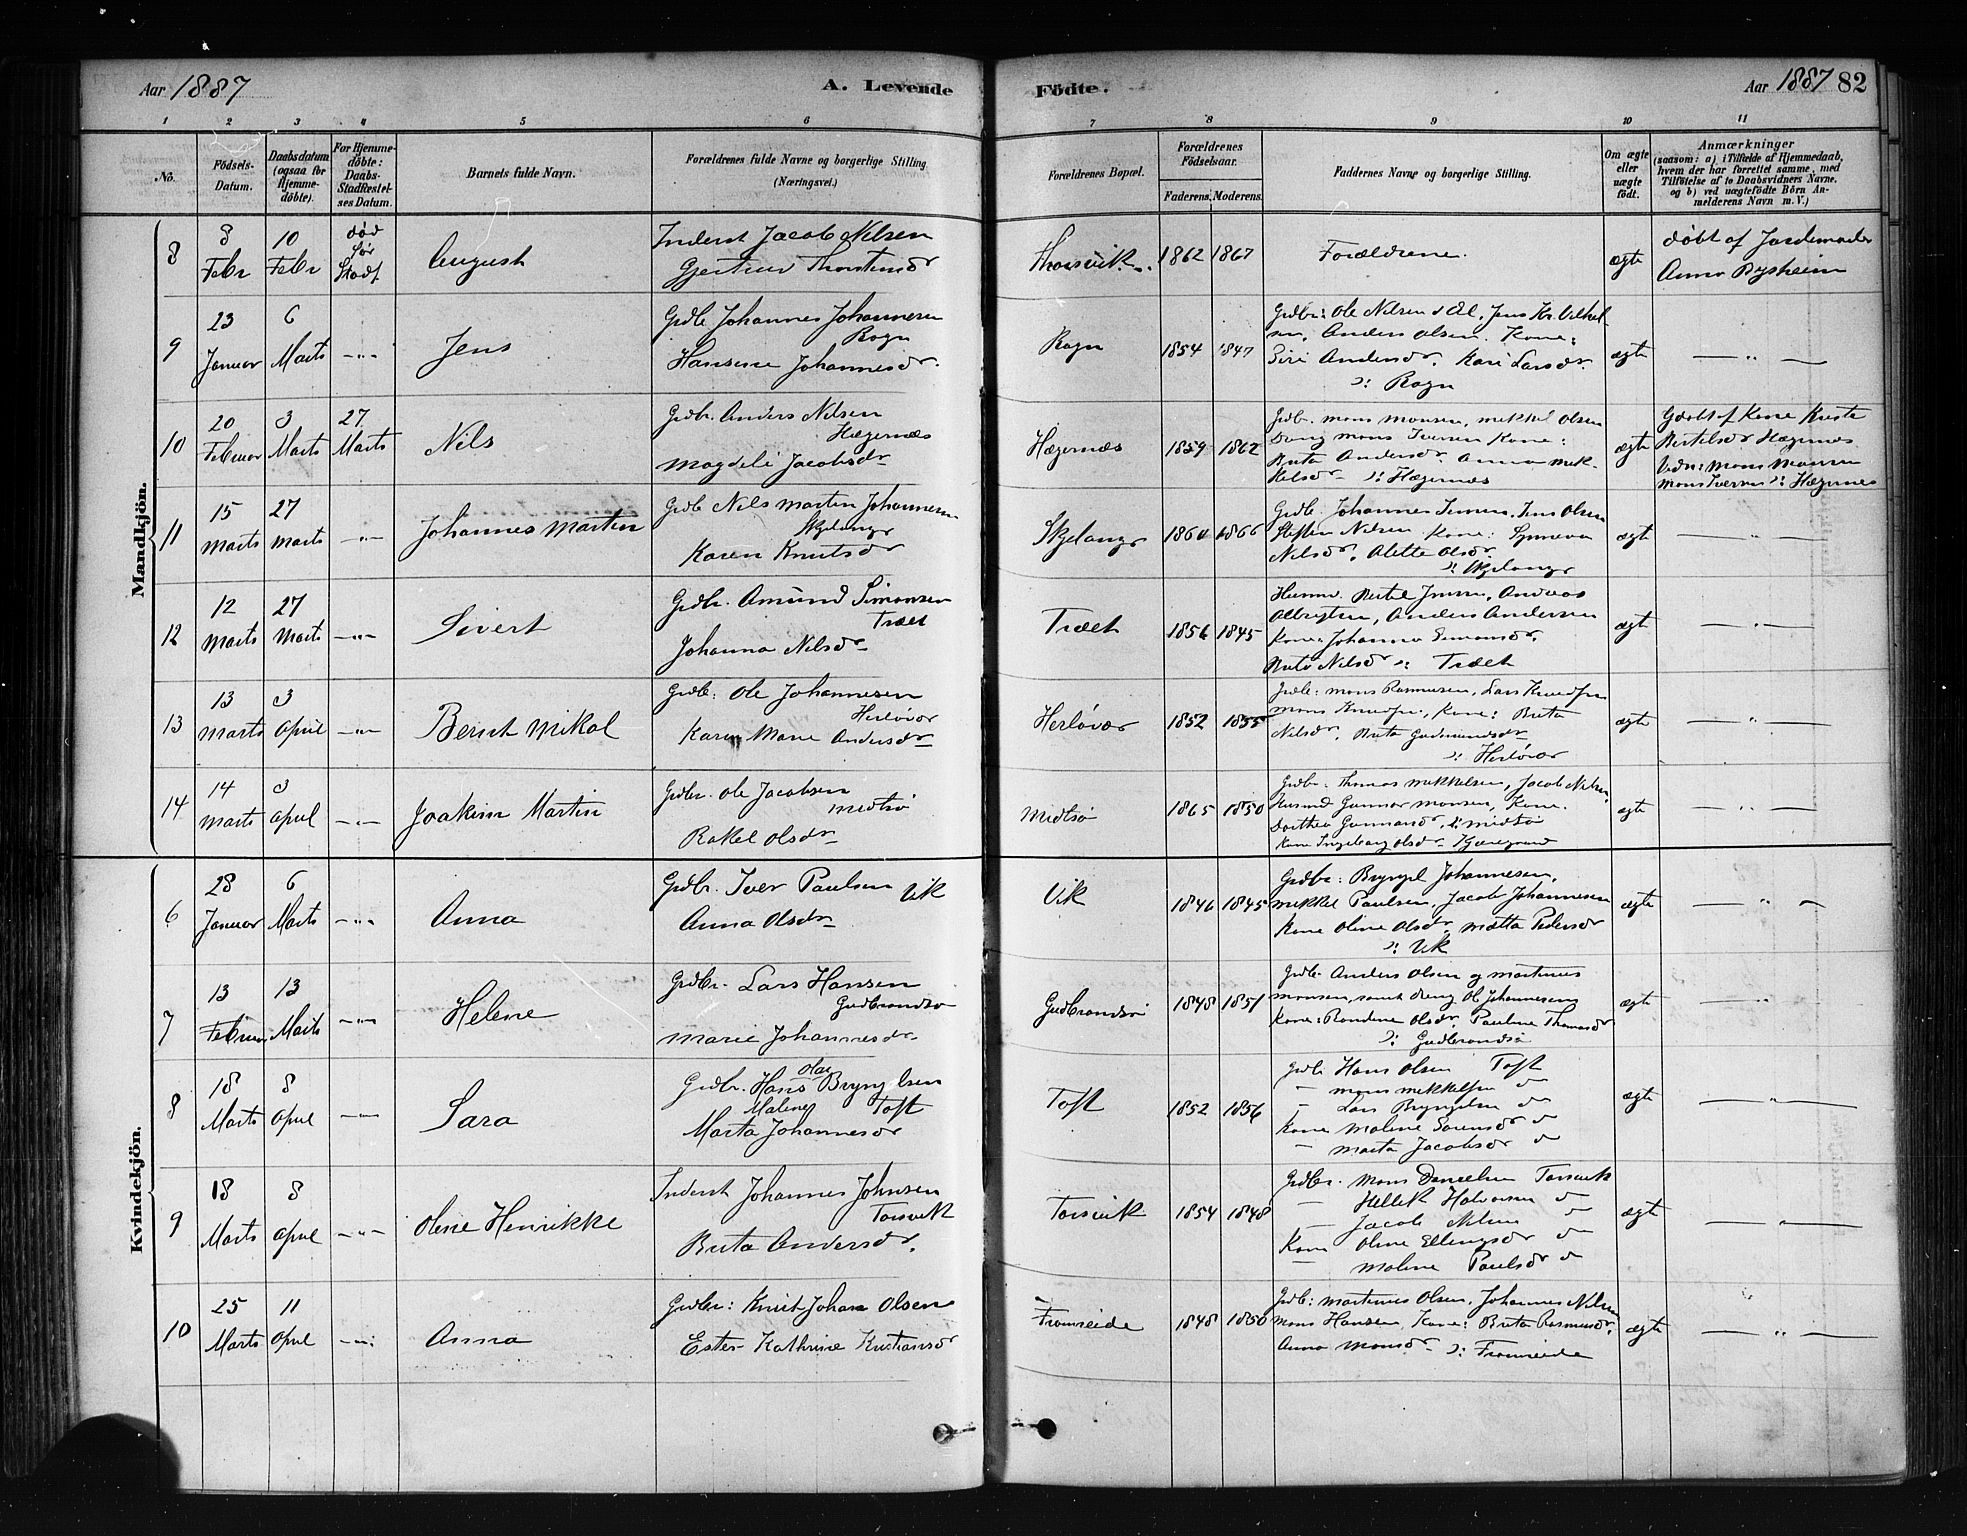 Aar 1887 A. Levende Födte. Aar 1887 82
1 2 3 4 5 6 7 8 9 10 11
No.
Födsels-Datum.
Daabsdatum (ogsaa for Hjemme-döbte).
For Hjemme-döbte: Daabs-Stadfæstel-ses Datum.
Barnets fulde Navn.
Forældrenes fulde Navne og borgerlige Stilling (Næringsvei.)
Forældrenes Bopæl.
Forældrenes Födselsaar.
Faderens. Moderens.
Faddernes Navne og borgerlige Stilling.
Om ægte eller uægte födt.
Anmærkninger
(saasom: a) i Tilfælde af Hjemmedaab,
hvem der har forrettet samme, med
Tilföielse af to Daabsvidners Navne.
og b) ved uægtefödte Börn An-
melderens Navn m. V.)
Mandkjön.
8 8 Febr 10 Febr död för Stadf August
Inderst Jacob Nilsen
Gjertrud Thorstensdr
Thorsvik 1862 1867 Forældrene. ægte
döbt af Jordemoder
Anna Bysheim
9 23 Januar 6 Marts -"- Jens
Grdb Johannes Johannesen
Rogn
Hansine Johannesdr.
Rogn 1854 1847
Grdbr: Ole Nilsen
Anders Olsen. Kone:
Siri Andersdr. Kari Larsdr.
ɔ: Rogn
ægte — " —
10 20 Februar 3 Marts 27 Marts Nils
Grdbr. Anders Nilsen
Hægernæs
Magdeli Jacobsdr
Hægernæs 1859 1862
Grdbr. Mons Monsen, Mikkel Olsen
Dreng Mons Iversen Kone:
Brita Andersdr. Anna Mik-
kelsdr ɔ: Hægernæs
ægte
Gdöbt af Kone
Bertelsdr Hægernæs
Vidn: Mons Monsen
Mons Iversen ɔ: Hægernæs
11 15 Marts 27 Marts -"- Johannes Martin
Grdb Nils Martin Johannesen
Skjelanger
Karen Knutsdr
Skjelanger 1860 1866
Grdb. Johannes Jensen, Jens Olsen
Steffen Nilsen Kone: Synneva
Nilsdr. Alette Olsdr.
ɔ: Skjelanger
ægte — " —
12 12 Marts 27 Marts -"- Sivert
Grdbr. Amund Simonsen
Træet
Johanna Nilsdr
Træet 1856 1845
Husmd. Bertel Jensen, Andreas
Albrigtsen, Anders Andersen
Kone: Johanna Simonsdr.
Brita Nilsdr ɔ: Træet
ægte — " —
13 13 Marts 3 April -"- Bernt Mikal
Grdb: Ole Johannesen
Herlövær
Karen Marie Andersdr
Herlövær 1852 1855
Grdb: Mons Rasmusen, Lars Knudsen
Mons Knudsen, Kone: Brita
Nilsdr. Brita Gudmundsdr
ɔ: Herlövær
ægte — " —
14 14 Marts 3 April -"- Joakim Martin
Grdbr. Ole Jacobsen
Midtsö
Rakel Olsdr
Midtsö 1865 1850
Grdbr. Thomas Mikkelsen, Jacob Nilsen
Husmd Gunnar Monsen, Kone.
Dorthea Gunnarsdr, ɔ: Midtsö
Kone Ingeborg Olsdr
ægte — " —
Kvindekjön.
6 28 Januar 6 Marts -"- Anna
Grdbr. Iver Paulsen Vik
Anna Olsdr
Vik 1846 1845
Grdbr: Bryngel Johannesen,
Mikkel Paulsen, Jacob Johannesen
Kone Oline Olsdr, Mætta Pedersdr
ɔ: Vik
ægte — " —
7 13 Februar 13 Marts -"- Helene
Grdbr. Lars Hansen
Gudbrandsö
Marie Johannesdr
Gudbrandsö 1848 1851
Grdb. Anders Olsen og Martinus
Monsen, samt dreng Ol Johannesen
Kone: Randine Olsdr, Pauline Thomasdr
ɔ: Gudbrandsö
ægte — " —
8 18 Marts 8 April -"- Sara
Olai
Grdbr. Hans Bryngelsen
Malene Toft
Marta Johannesdr
Toft 1852 1856
Grdb Hans Olsen Toft
— Mons Mikkelsen do
— Lars Bryngelsen do
Kone Malene Sørensdr do
— Marta Jacobsdr do
ægte — " —
9 18 Marts 8 April -"- Oline Henrikke
Inderst Johannes Johnsen
Torsvik
Brita Andersdr.
Torsvik 1854 1848
Grdbr. Mons Danielsen Torsvik
— Hellek Halvorsen do
— Jacob Nilsen do
Kone Oline Ellingsdr do
— Malene Paulsdr do
ægte — " —
10 25 Marts 11 April -"- Anna
Grdbr: Knut Johan Olsen
Ester Kathrine Kristiansdr
Fromreide 1848 1850
Grdb: Martinus Olsen, Johannes Nilsen
Mons Hansen, Kone: Brita Rasmusdr,
Anna Monsdr ɔ: Fromreide
ægte — " —